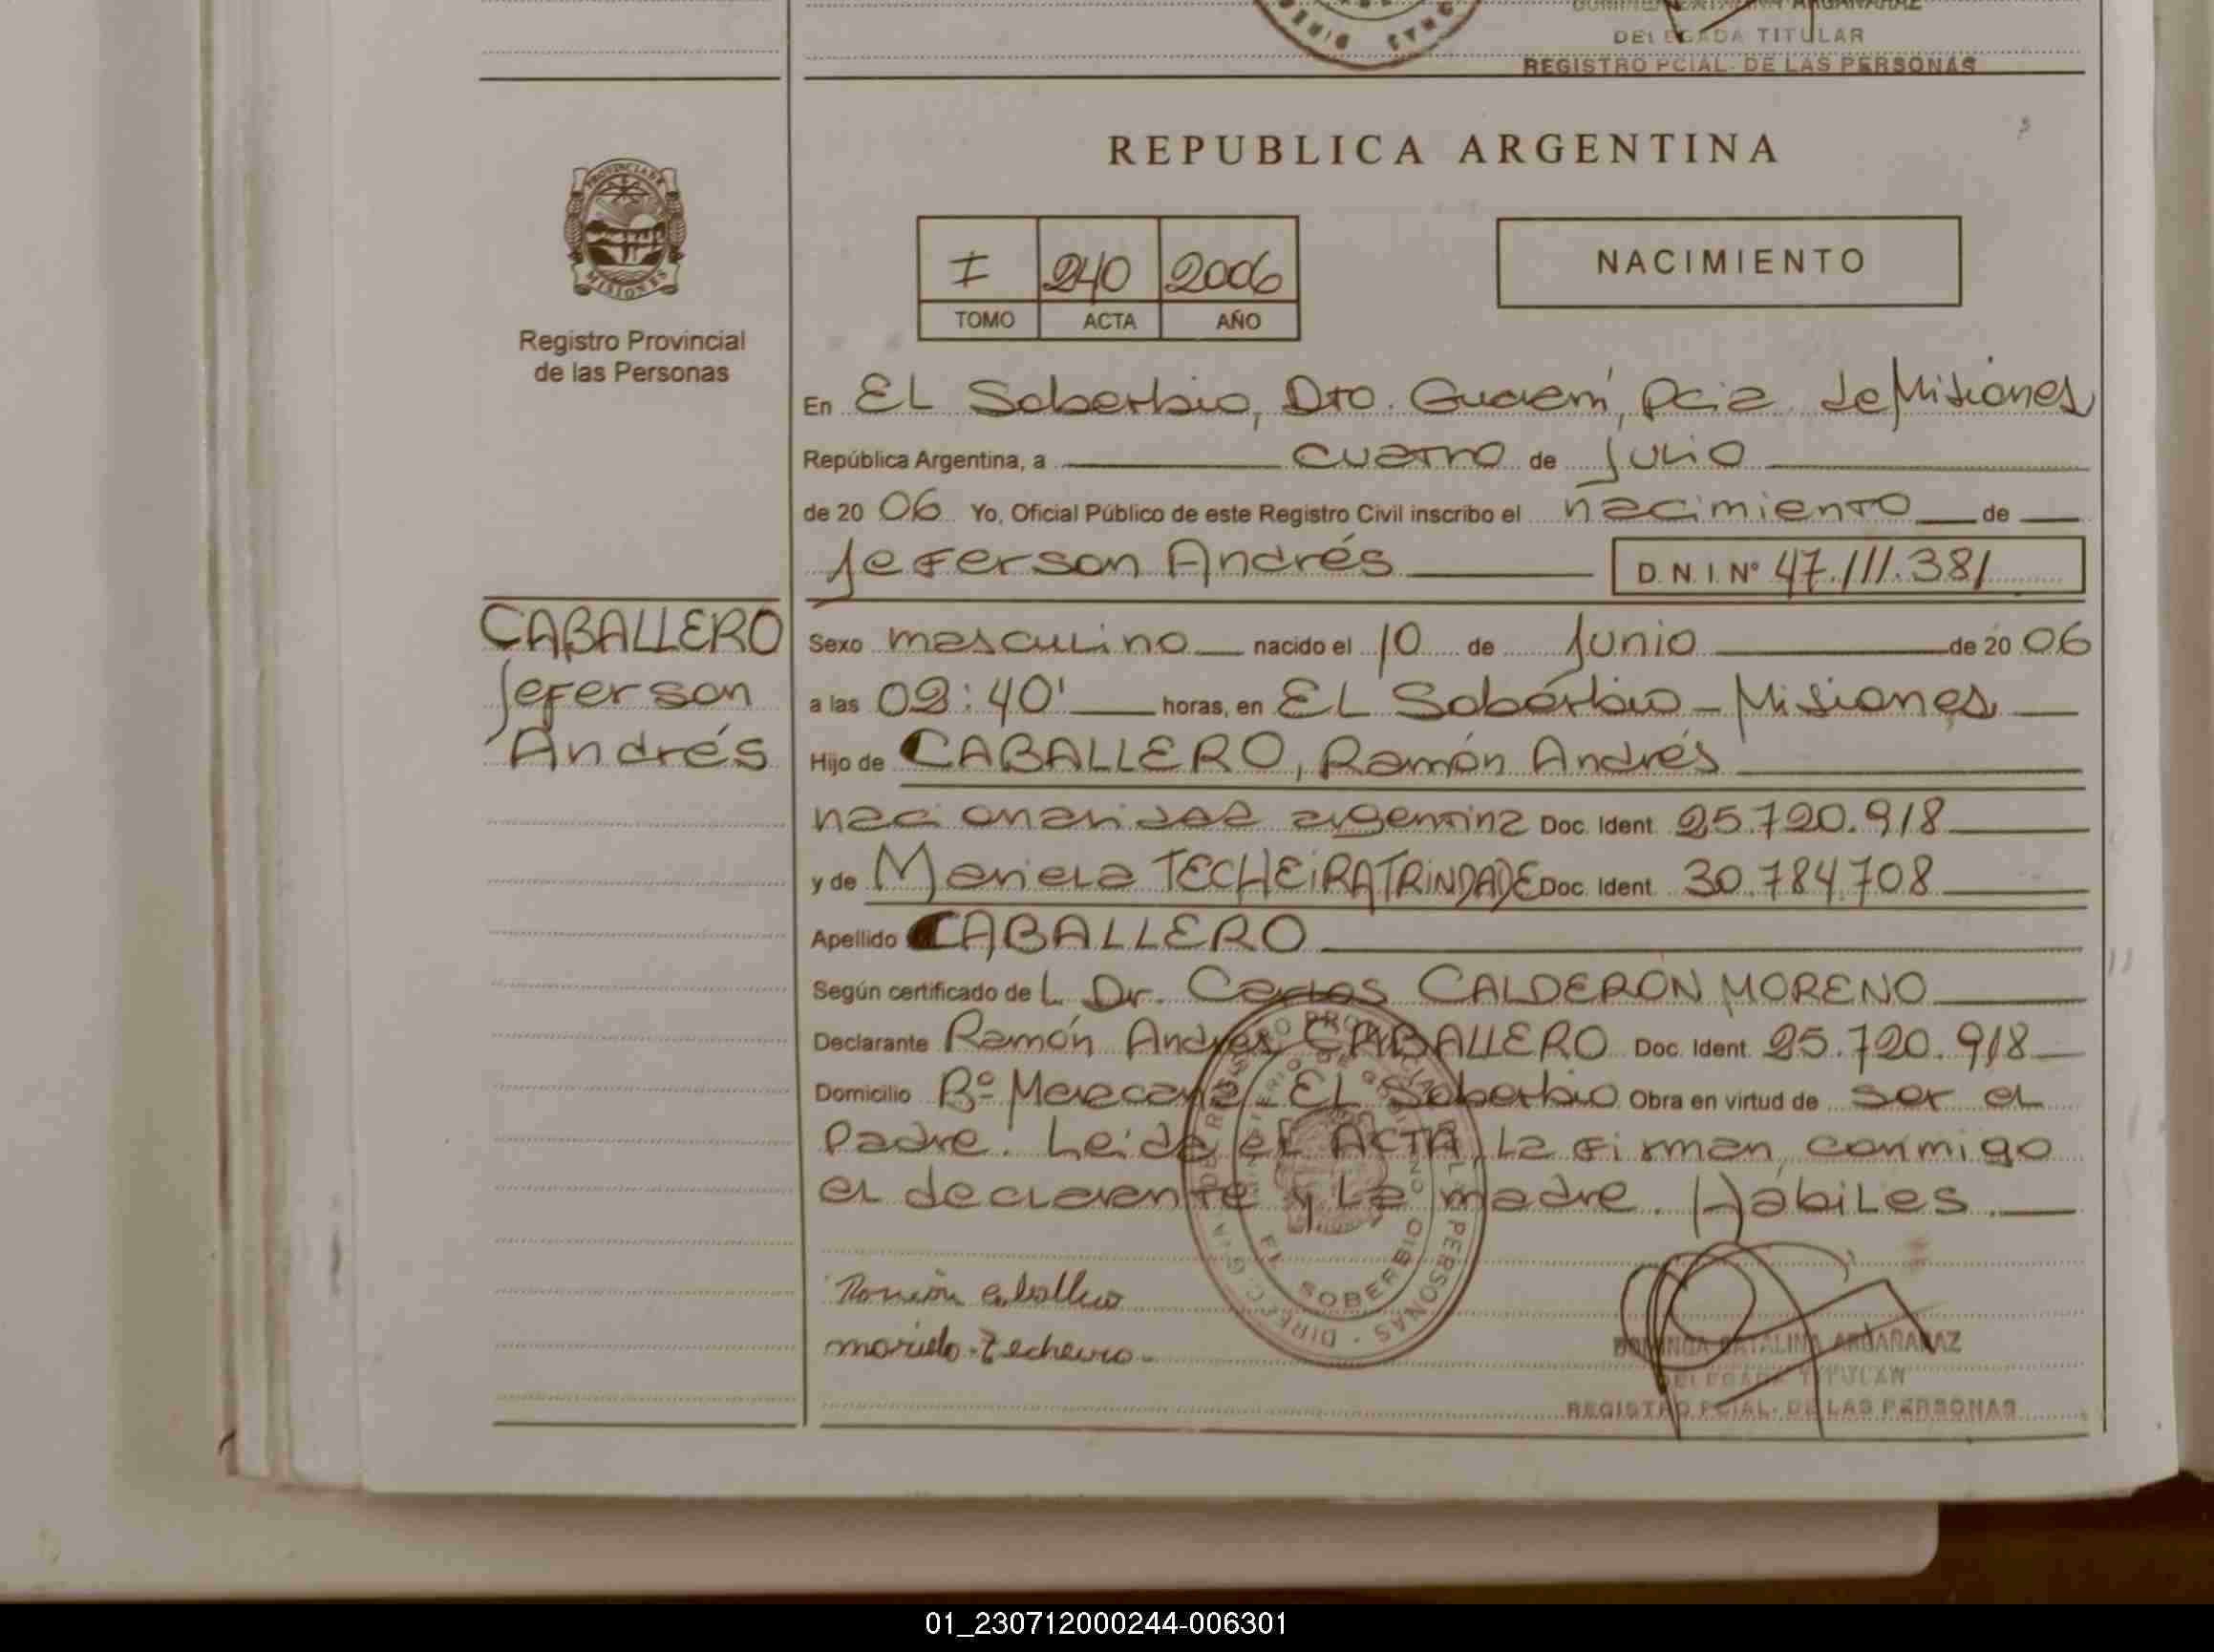 DELEGADA TITULAR
REGISTRO PCIAL. DE LAS PERSONAS
REPUBLICA ARGENTINA
PROVINCIA DE
MISIONES
Registro Provincial
de las Personas
I 240 2006
TOMO ACTA AÑO
NACIMIENTO
En EL Soberbio, Dto. Guaraní, Pcia de Misiones
República Argentina, a cuatro de Julio
de 20 06 Yo, Oficial Público de este Registro Civil inscribo el nacimiento de
Jeferson Andrés D.N.I. Nº 47.111.381
CABALLERO
Jeferson
Andrés
Sexo masculino nacido el 10 de Junio de 20 06
a las 09:40' horas, en EL Soberbio - Misiones
Hijo de CABALLERO, Ramón Andrés
nacionalidad argentina Doc. Ident. 25.720.918
y de Mariela TECHEIRA TRINDADE Doc. Ident. 30.784.708
Apellido CABALLERO
Según certificado de L Dr. Carlos CALDERÓN MORENO
Declarante Ramón Andrés CABALLERO Doc. Ident. 25.720.918
Domicilio Bº Maracaná - EL Soberbio Obra en virtud de ser el
Padre. Leída el ACTA, la firman conmigo
el declarante y la madre. Hábiles.
EL SOBERBIO
Ramón Caballero
DOMINGA CATALINA ARGAÑARAZ
DELEGADA TITULAR
REGISTRO PCIAL. DE LAS PERSONAS
01_230712000244-006301